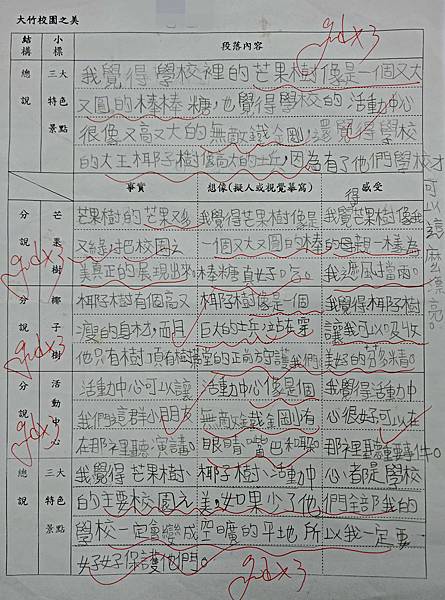 大竹校園之美
結構 小標 段落內容
gd×3
總說 三大特色景點
我覺得學校裡的芒果樹像是一個又大
又圓的棒棒糖,也覺得學校的活動中心
很像又高又大的無敵鐵金剛,還覺得學校
的大王椰子樹像高大的士兵,因為有了他們學校才
可以這麼漂亮。
事實 想像(擬人或視覺摹寫) 感受
分說 芒果樹
芒果樹的芒果又
又綠把校園之
美真正的展現出來
我覺得芒果樹像是
一個又大又圓的棒
棒糖真好吃。
我覺得芒果樹像我
的母親一樣為
我遮風擋雨。
gd×3
分說 椰子樹
椰子樹有個高又
瘦的身材,而且
他只有樹頂有
椰子樹像是一個
巨大的士兵站在
的正前方守護我們
我覺得椰子樹
讓我可以吸收
美好的芬多精。
gd×3
分說 活動中心
活動中心可以讓
我們這群小朋友
在那裡聽演講。
活動中心像是個
無敵鐵金剛有
眼睛嘴巴和
我覺得活動中
心很好可以在
那裡聽重要事件。
gd×3
總說 三大特色景點
我覺得芒果樹、椰子樹、活動中心都是學校
的主要校園之美,如果少了他們全部我的
學校一定會變成空曠的平地所以我一定要
好好保護他們。
gd×3